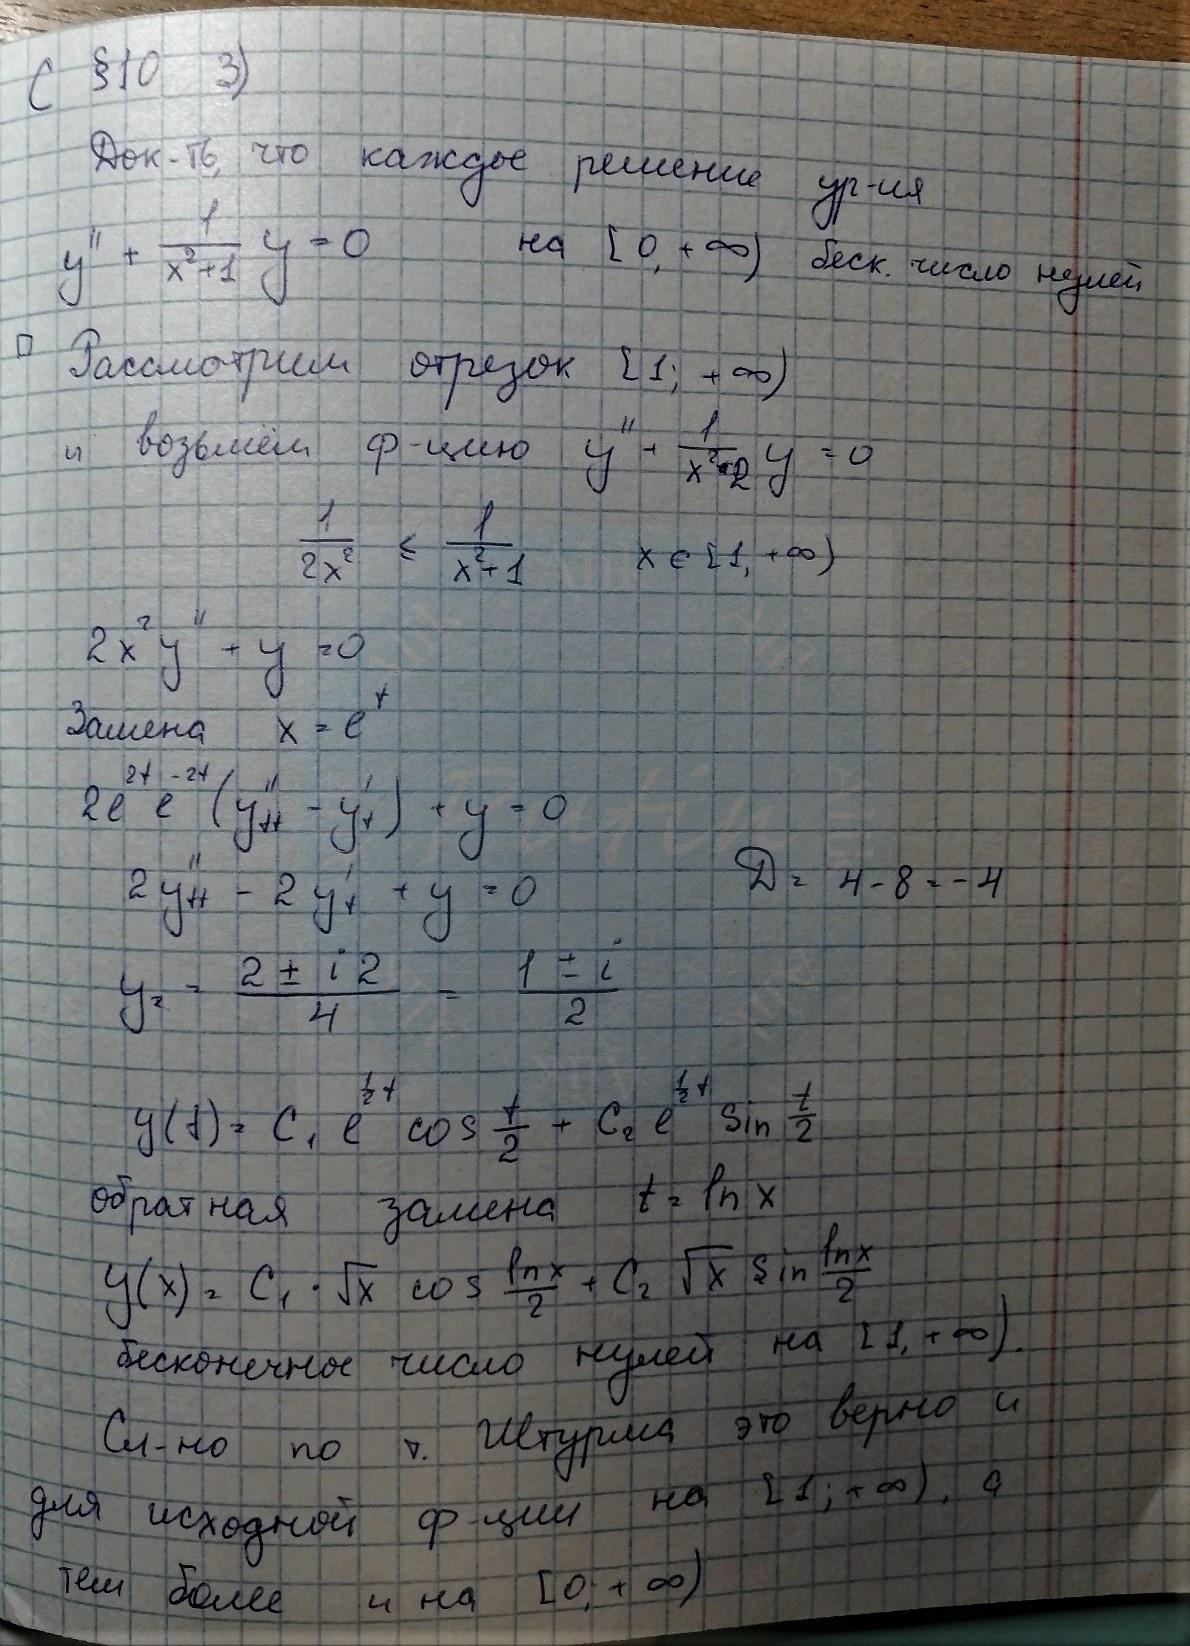 С §10 3)
Док-ть, что каждое решение ур-ия
y'' + \frac{1}{x²+1} y = 0 на [0, +∞) беск. число нулей
□ Рассмотрим отрезок [1; +∞)
и возьмём ф-цию y'' + \frac{1}{x²·2} y = 0
\frac{1}{2x²} ≤ \frac{1}{x²+1} x ∈ [1, +∞)
2x²y'' + y = 0
Замена x = e^t
2e^{2t} e^{-2t} (y''_{tt} - y'_t) + y = 0
2y''_{tt} - 2y'_t + y = 0 D = 4 - 8 = -4
y_2 = \frac{2 ± i2}{4} = \frac{1 ± i}{2}
y(t) = C_1 e^{\frac{1}{2}t} cos \frac{t}{2} + C_2 e^{\frac{1}{2}t} sin \frac{t}{2}
обратная замена t = ln x
y(x) = C_1 · √x cos \frac{ln x}{2} + C_2 √x sin \frac{ln x}{2}
бесконечное число нулей на [1, +∞).
Сл-но по т. Штурма это верно и
для исходной ф-ции на [1; +∞), а
тем более и на [0; +∞)